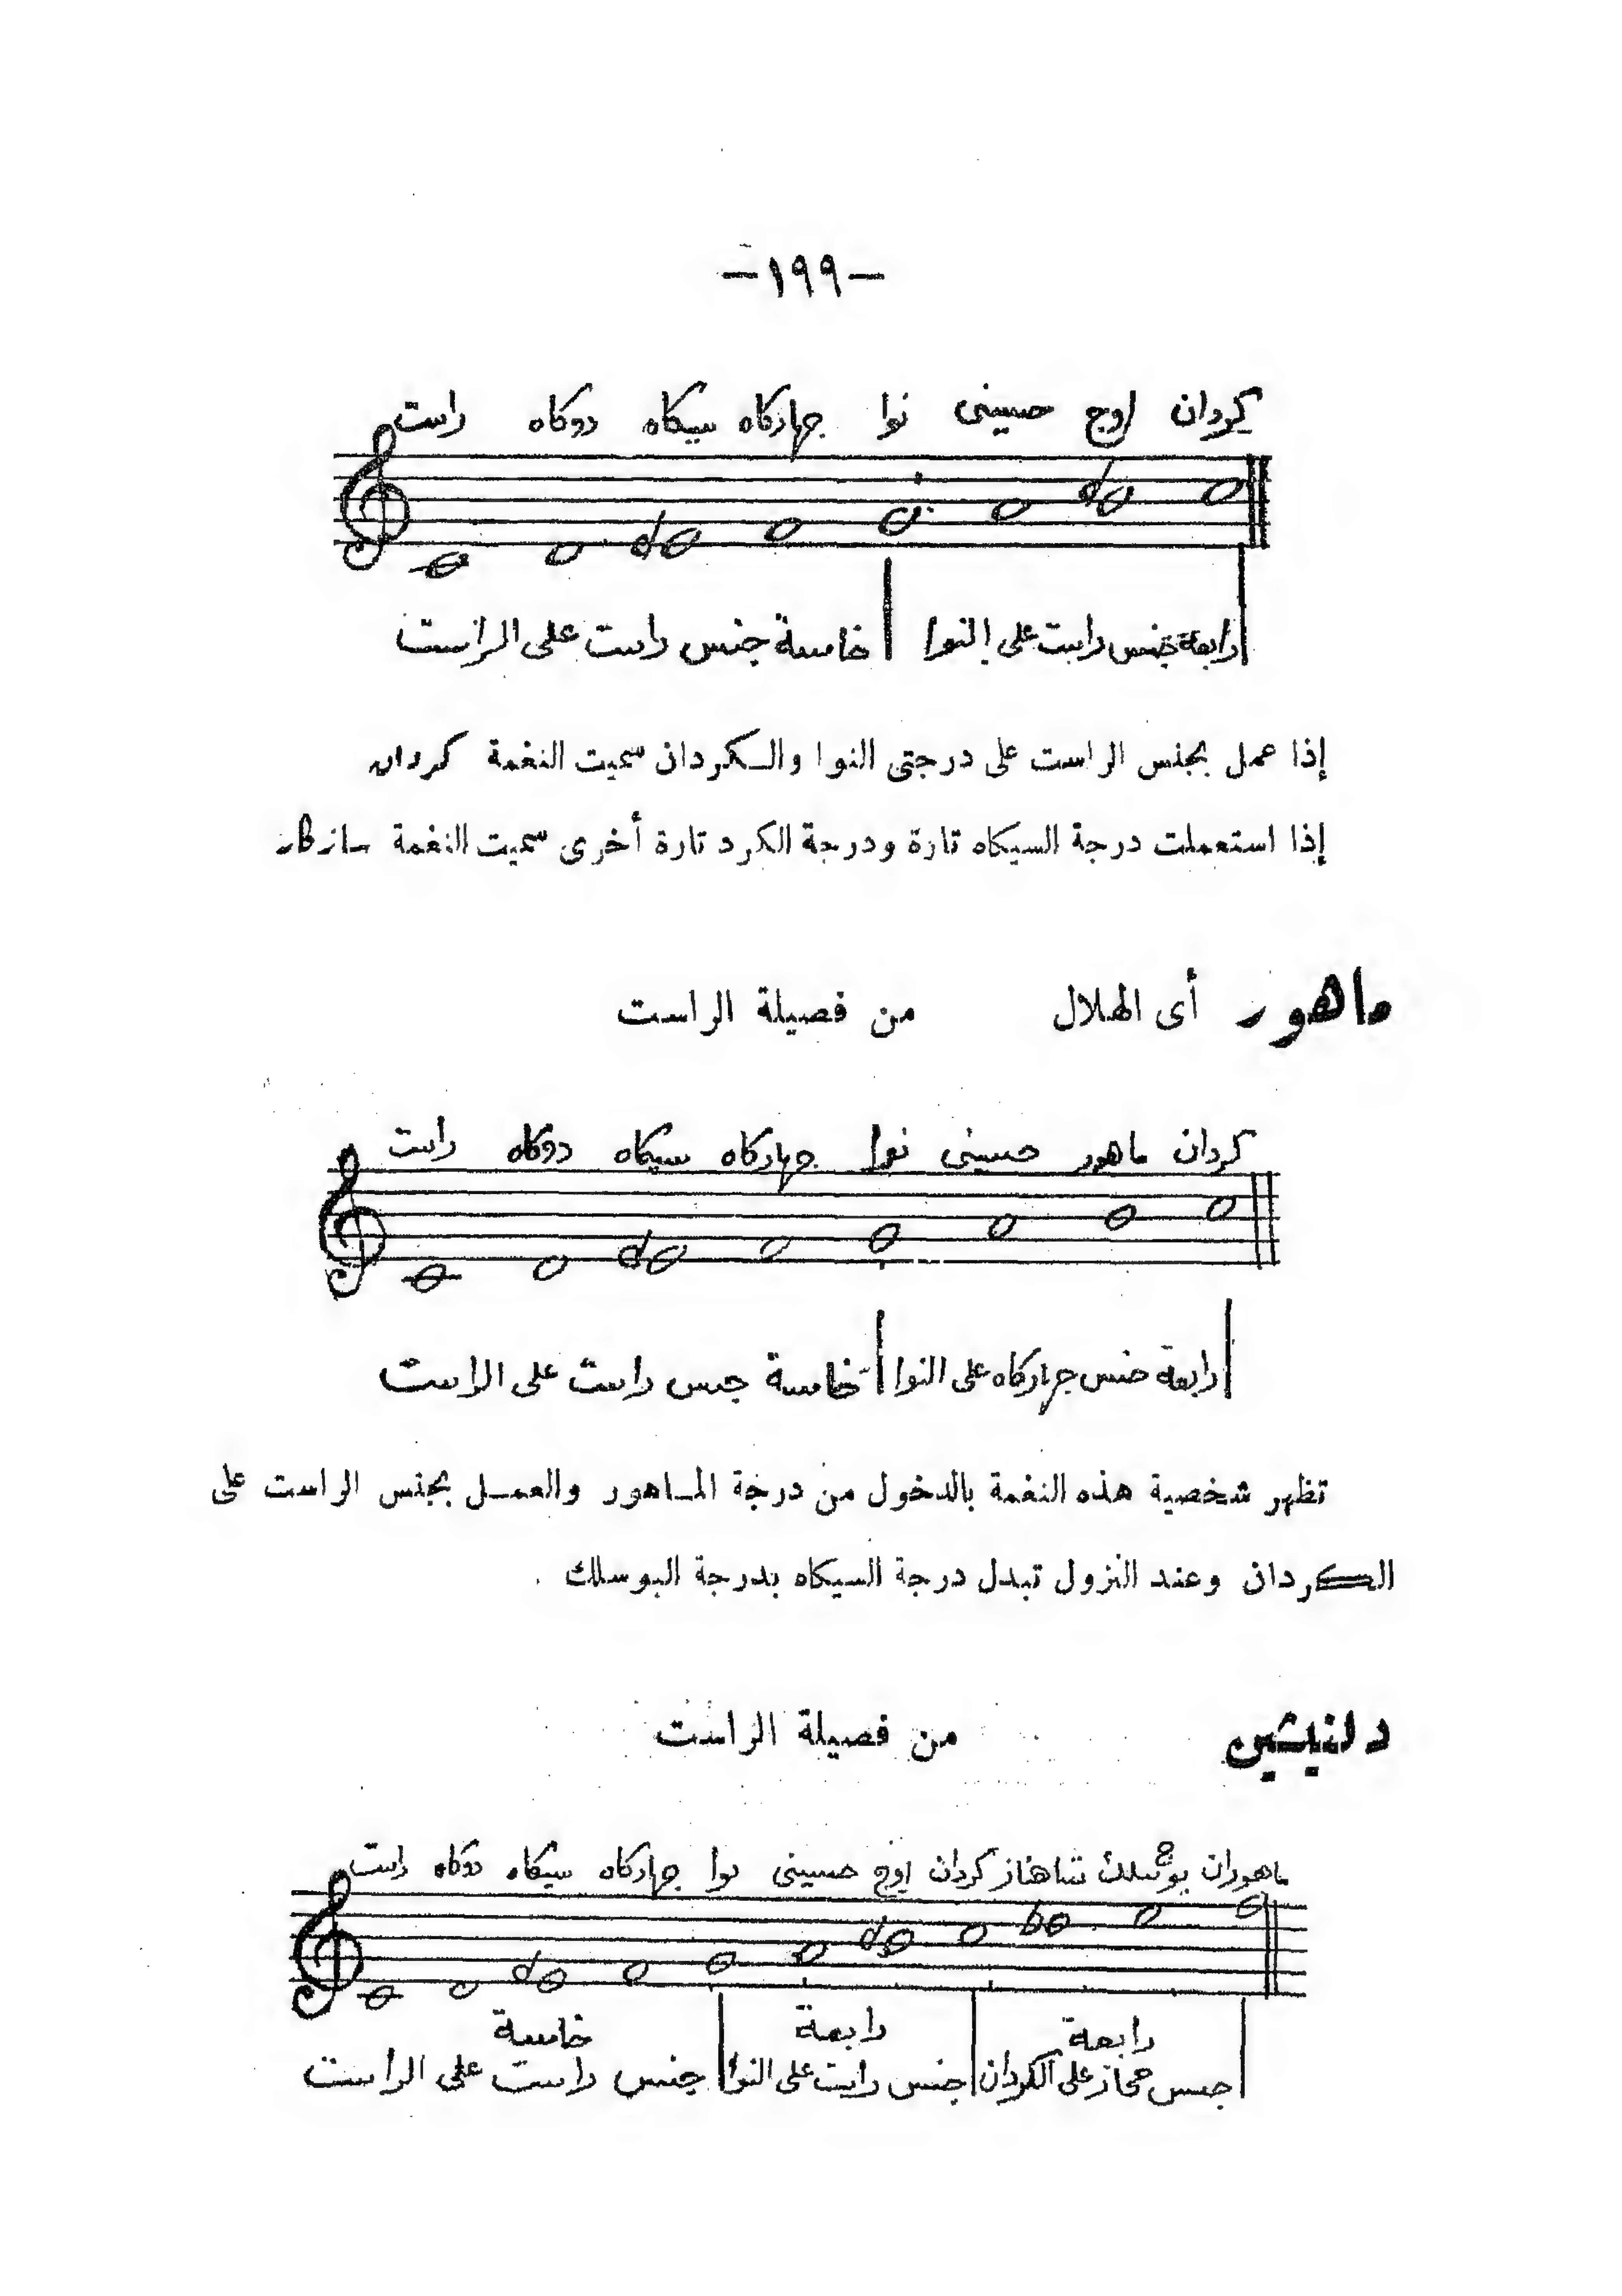 -١٩٩-
كردان اوج حسينى نوا جهاركاه سيكاه دوكاه راست
رابعة جنس راست على النوا خامسة جنس راست على الراست
إذا عمل بجنس الراست على درجتى النوا والكردان سميت النغمة كردان
إذا استعملت درجة السيكاه تارة ودرجة الكرد تارة أخرى سميت النغمة سازكار
ماهور أى الهلال من فصيلة الراست
كردان ماهور حسينى نوا جهاركاه سيكاه دوكاه راست
رابعة جنس جهاركاه على النوا خامسة جنس راست على الراست
تظهر شخصية هذه النغمة بالدخول من درجة الماهور والعمل بجنس الراست على
الكردان وعند النزول تبدل درجة السيكاه بدرجة البوسلك .
دلنيشين من فصيلة الراست
ماهوران بوسلك شاهناز كردان اوج حسينى نوا جهاركاه سيكاه دوكاه راست
رابعة رابعة خامسة
جنس حجاز على الكردان جنس راست على النوا جنس راست على الراست